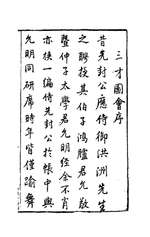 三才圖會序
昔先封公應侍御洪洲先生
之聘授其伯子鴻臚君允
仲子太學君允明經余不肖
亦挾一編侍先封公於帳中與
允明同研席時年皆僅踰舞